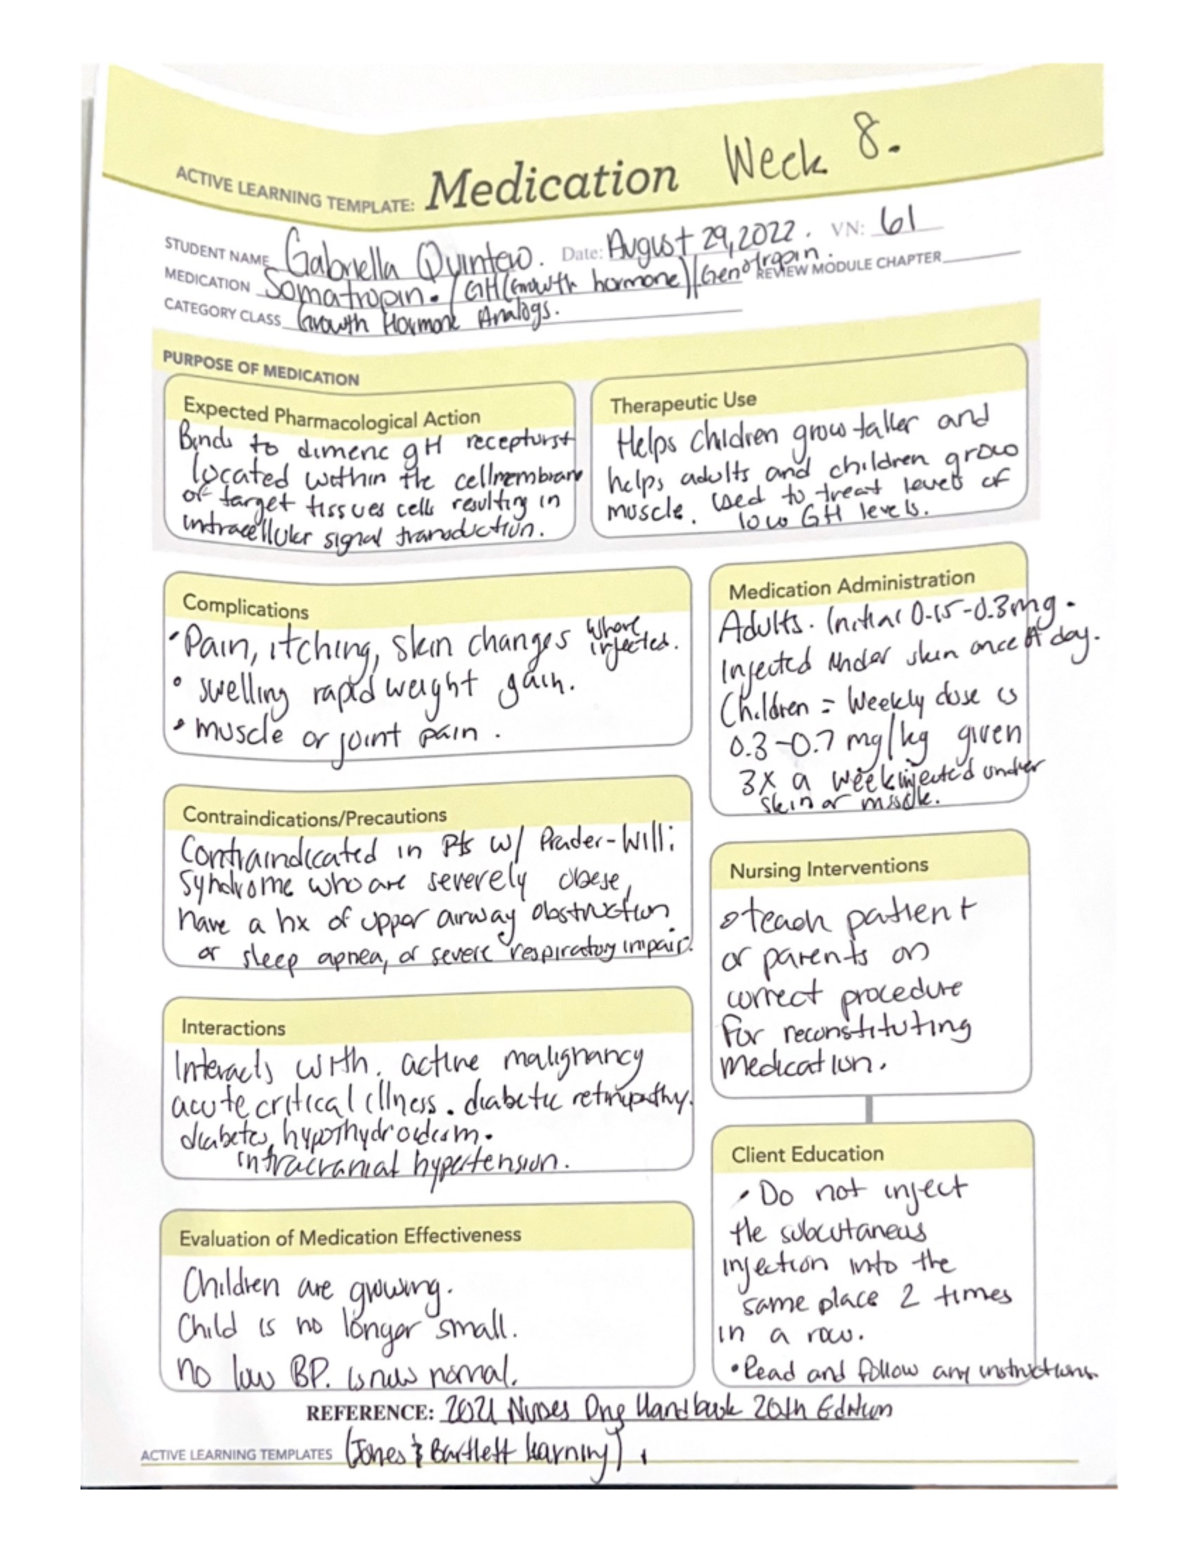 Week 8.
ACTIVE LEARNING TEMPLATE: Medication
STUDENT NAME Gabriella Quintero. Date: August 29, 2022. VN: 61
MEDICATION Somatropin. / GH (Growth hormone) / Genotropin. REVIEW MODULE CHAPTER
CATEGORY CLASS Growth Hormone Analogs.
PURPOSE OF MEDICATION
Expected Pharmacological Action
Binds to dimeric gH
located within the cell membrane
of target tissues cells resulting in
intracellular signal transduction.
Therapeutic Use
Helps children grow taller and
helps adults and children grow
muscle. Used to treat levels of
low GH levels.
Complications
• Pain, itching, skin changes where
injected.
• swelling rapid weight gain.
• muscle or joint pain.
Medication Administration
Adults. Initial 0.15-0.3mg.
Injected under skin once A day.
Children = Weekly dose is
0.3-0.7 mg/kg given
3x a week injected under
skin or muscle.
Contraindications/Precautions
Contraindicated in Pts w/ Prader-Willi
Syndrome who are severely obese,
have a hx of upper airway obstruction
or sleep apnea, or severe respiratory impair.
Nursing Interventions
• teach patient
or parents on
correct procedure
for reconstituting
medication.
Interactions
Interacts with. active malignancy
acute critical illness. diabetic retinopathy.
diabetes,
intracranial hypertension.
Client Education
• Do not inject
the subcutaneus
injection into the
same place 2 times
in a row.
• Read and follow any instructions.
Evaluation of Medication Effectiveness
Children are growing.
Child is no longer small.
no low BP. is now normal.
REFERENCE: 2021 Nurses Drug Handbook 20th Edition
ACTIVE LEARNING TEMPLATES (Jones & Bartlett learning).